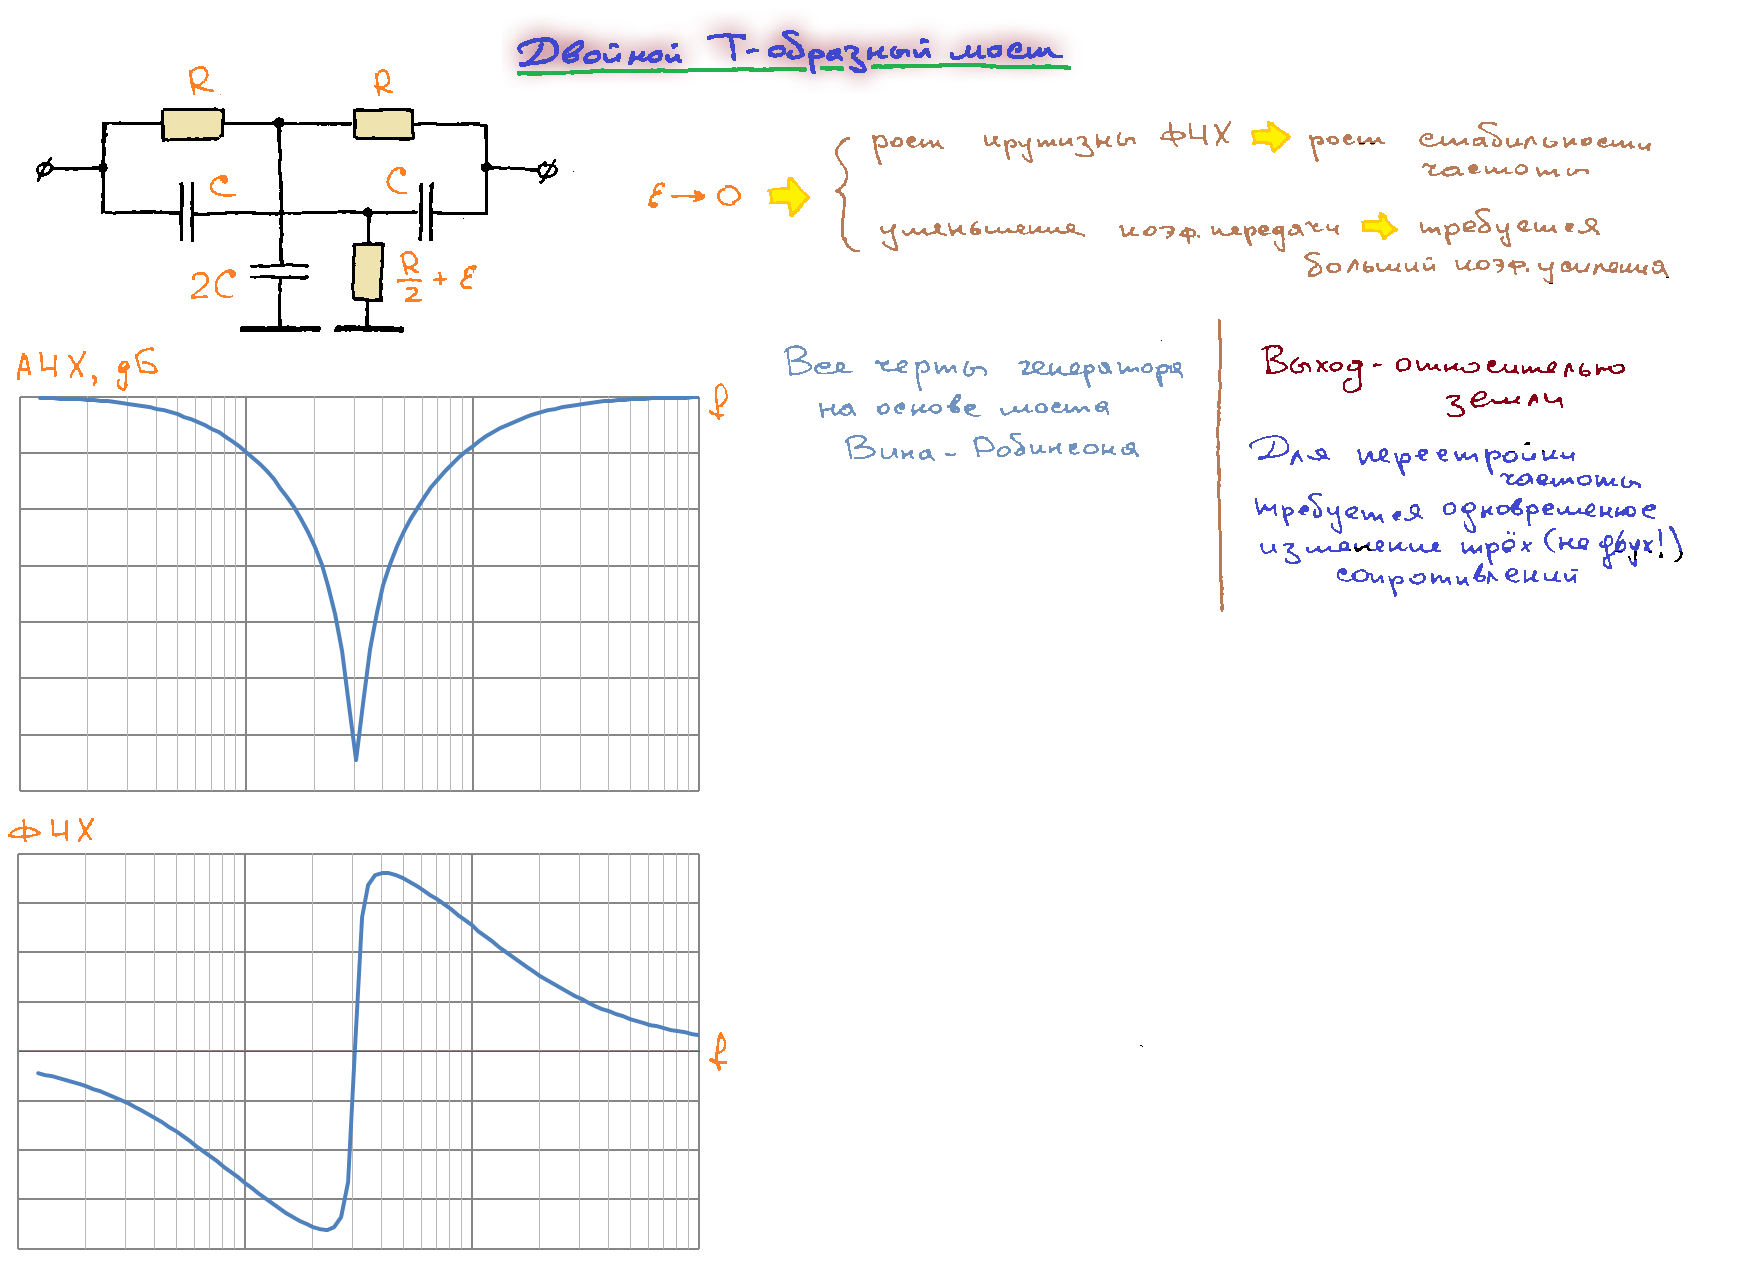 Двойной Т-образный мост
R
R
C
C
2C
R/2 + ε
ε → 0
рост крутизны ФЧХ
рост стабильности
частоты
уменьшение коэф. передачи
требуется
больший коэф. усиления
АЧХ, дБ
f
Все черты генератора
на основе моста
Вина-Робинсона
Выход - относительно
земли
Для перестройки
частоты
требуется одновременное
изменение трёх (не двух!)
сопротивлений
ФЧХ
f